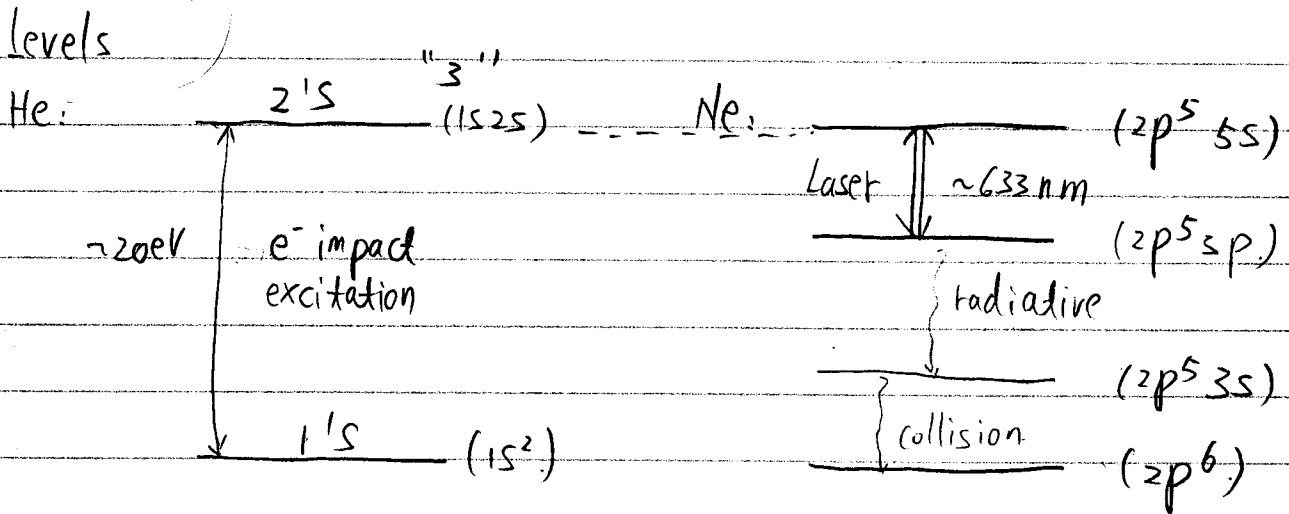 levels
"3"
He: 2¹S (1s2s) Ne: (2p⁵ 5s)
Laser ~633nm
(2p⁵3p.)
~20eV e⁻ impact
excitation
radiative
(2p⁵ 3s)
collision
1¹S (1s².) (2p⁶.)